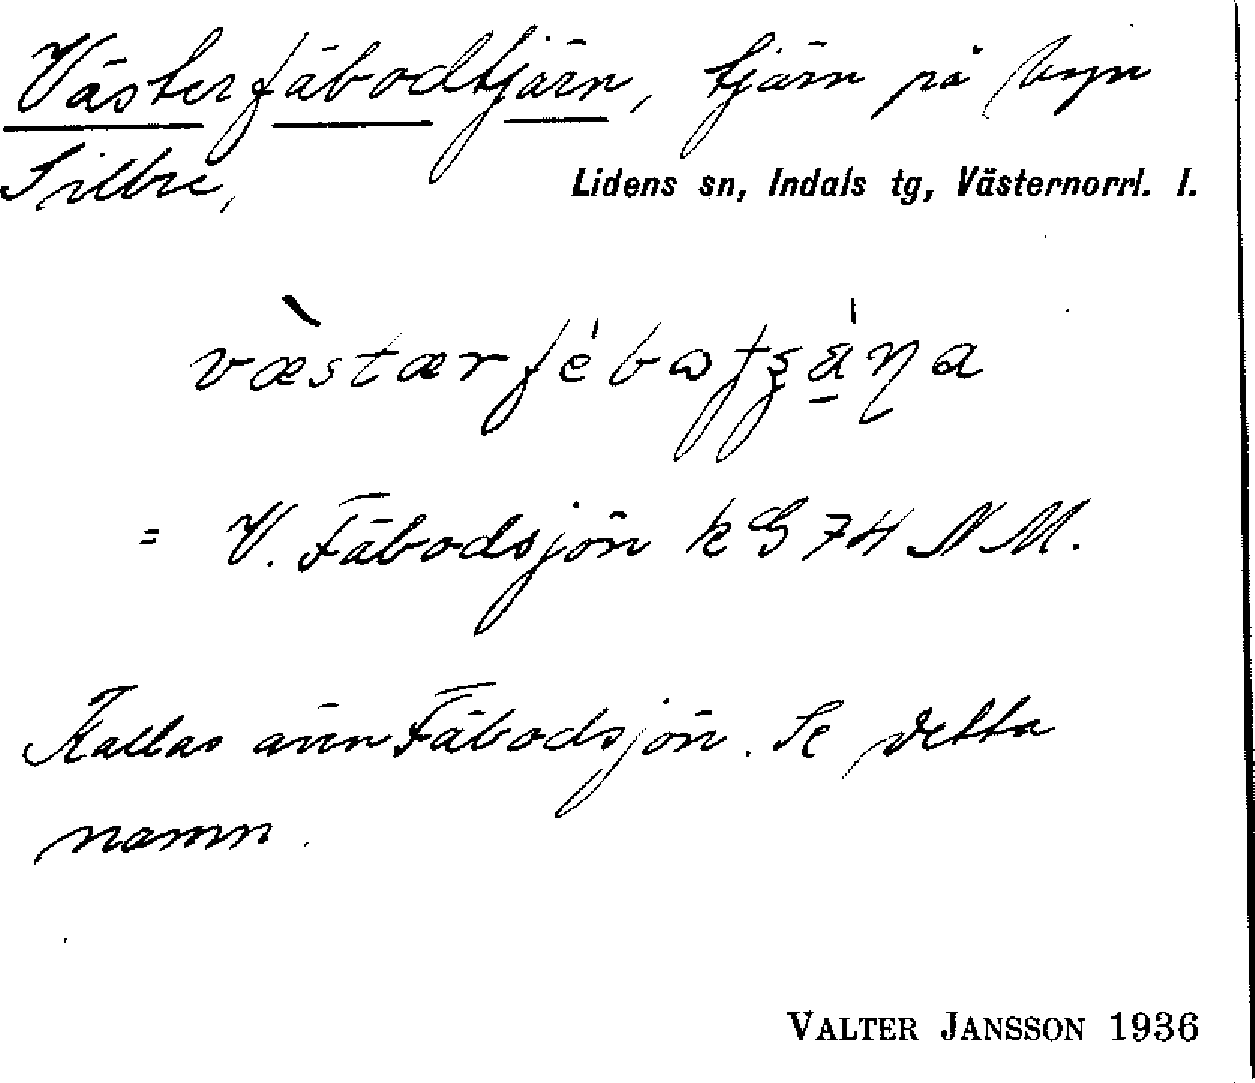 Västerfäbodtjärn, tjärn på byn
Sillre,
Lidens sn, Indals tg, Västernorrl. l.
= V. Fäbodsjön k G 74 N M.
Kallas även Fäbodsjön. Se detta
namn.
VALTER JANSSON 1936